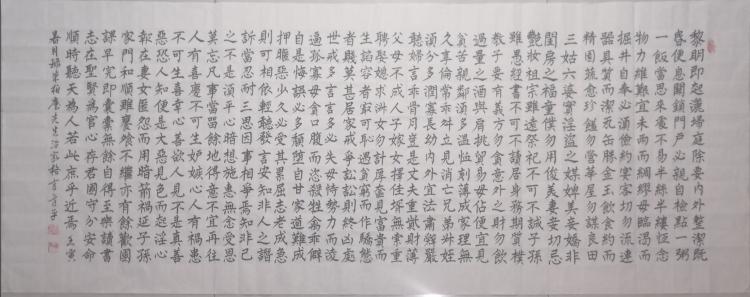 黎明即起灑掃庭除要內外整潔既
昏便息關鎖門戶必親自檢點一粥
一飯當思來處不易半絲半縷恆念
物力維艱宜未雨而綢繆毋臨渴而
掘井自奉必須儉約宴客切勿流連
器具質而潔瓦缶勝金玉飲食約而
精園蔬愈珍饈勿營華屋勿謀良田
三姑六婆實淫盜之媒婢美妾嬌非
閨房之福童僕勿用俊美妻妾切忌
艷妝祖宗雖遠祭祀不可不誠子孫
雖愚經書不可不讀居身務期質樸
教子要有義方勿貪意外之財勿飲
過量之酒與肩挑貿易毋佔便宜見
貧苦親鄰須多溫恤刻薄成家理無
久享倫常乖舛立見消亡兄弟叔姪
須分多潤寡長幼內外宜法肅辭嚴
聽婦言乖骨肉豈是丈夫重貲財薄
父母不成人子嫁女擇佳婿無索重
聘娶媳求淑女勿計厚奩見富貴而
生諂容者最可恥遇貧窮而作驕態
者賤莫甚居家戒爭訟訟則終凶處
世戒多言言多必失毋恃勢力而凌
逼孤寡毋貪口腹而恣殺牲禽乖僻
自是悔誤必多頹墮自甘家道難成
狎暱惡少久必受其累屈志老成急
則可相依輕聽發言安知非人之譖
訴當忍耐三思因事相爭焉知非己
之不是須平心暗想施惠無念受恩
莫忘凡事當留餘地得意不宜再往
人有喜慶不可生妒嫉心人有禍患
不可生喜幸心善欲人見不是真善
惡恐人知便是大惡見色而起淫心
報在妻女匿怨而用暗箭禍延子孫
家門和順雖饔飧不繼亦有餘歡國
課早完即囊橐無餘自得至樂讀書
志在聖賢為官心存君國守分安命
順時聽天為人若此庶乎近焉 壬寅
春月錄朱柏廬先生治家格言